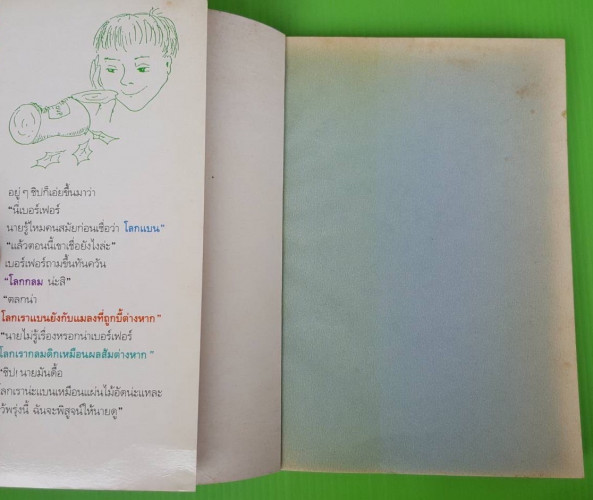 อยู่ ๆ ชิปก็เอ่ยขึ้นมาว่า
“นี่เบอร์เฟอร์
นายรู้ไหมคนสมัยก่อนเชื่อว่า โลกแบน”
“แล้วตอนนี้เขาเชื่อยังไงล่ะ”
เบอร์เฟอร์ถามขึ้นทันควัน
“โลกกลม น่ะสิ”
“ตลกน่า
โลกเราแบนยังกับแมลงที่ถูกบี้ต่างหาก”
“นายไม่รู้เรื่องหรอกน่าเบอร์เฟอร์
โลกเรากลมดิกเหมือนผลส้มต่างหาก”
“ชิป! นายมันดื้อ
โลกเราน่ะแบนเหมือนแผ่นไม้อัดน่ะแหละ
ว้พรุ่งนี้ ฉันจะพิสูจน์ให้นายดู”